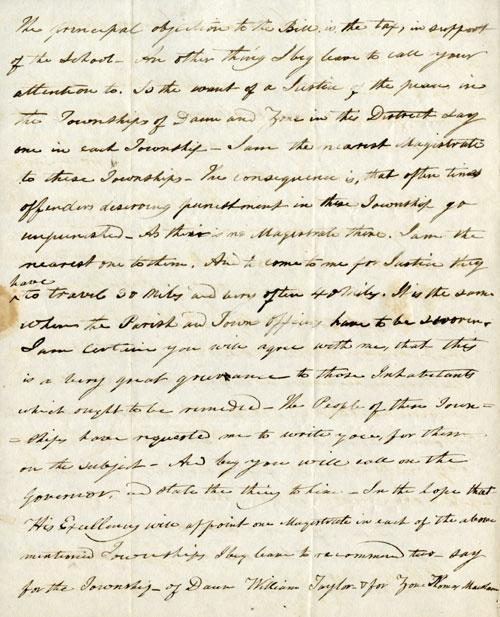 The principal objection to the Bill is the tax, in support
of the School – An other thing I beg leave to call your
attention to. Is the want of a Justice of the peace in
the Townships of Dawn and Zone in this District say
one in each Township – I am the nearest Magistrate
to these Townships – The consequence is, that often times
offenders deserving punishment in these Township go
unpunished – As their is no Magistrate there. I am the
nearest one to them. And to come to me for Justice they
have
^ to travel 30 Miles and very often 40 Miles. It is the same
when the Parish and Town officers have to be sworn.
I am certain you will agree with me, that this
is a very great grievance to those Inhabitants
which ought to be remedied – The People of these Town=
=ships have requested me to write you, for them
on the subject – And beg you will call on the
Governor, and state the thing to him – In the hope that
His Excellency will appoint one Magistrate in each of the above
mentioned Townships, I beg leave to recommend two – say
for the Township – of Dawn William Taylor – & for Zone